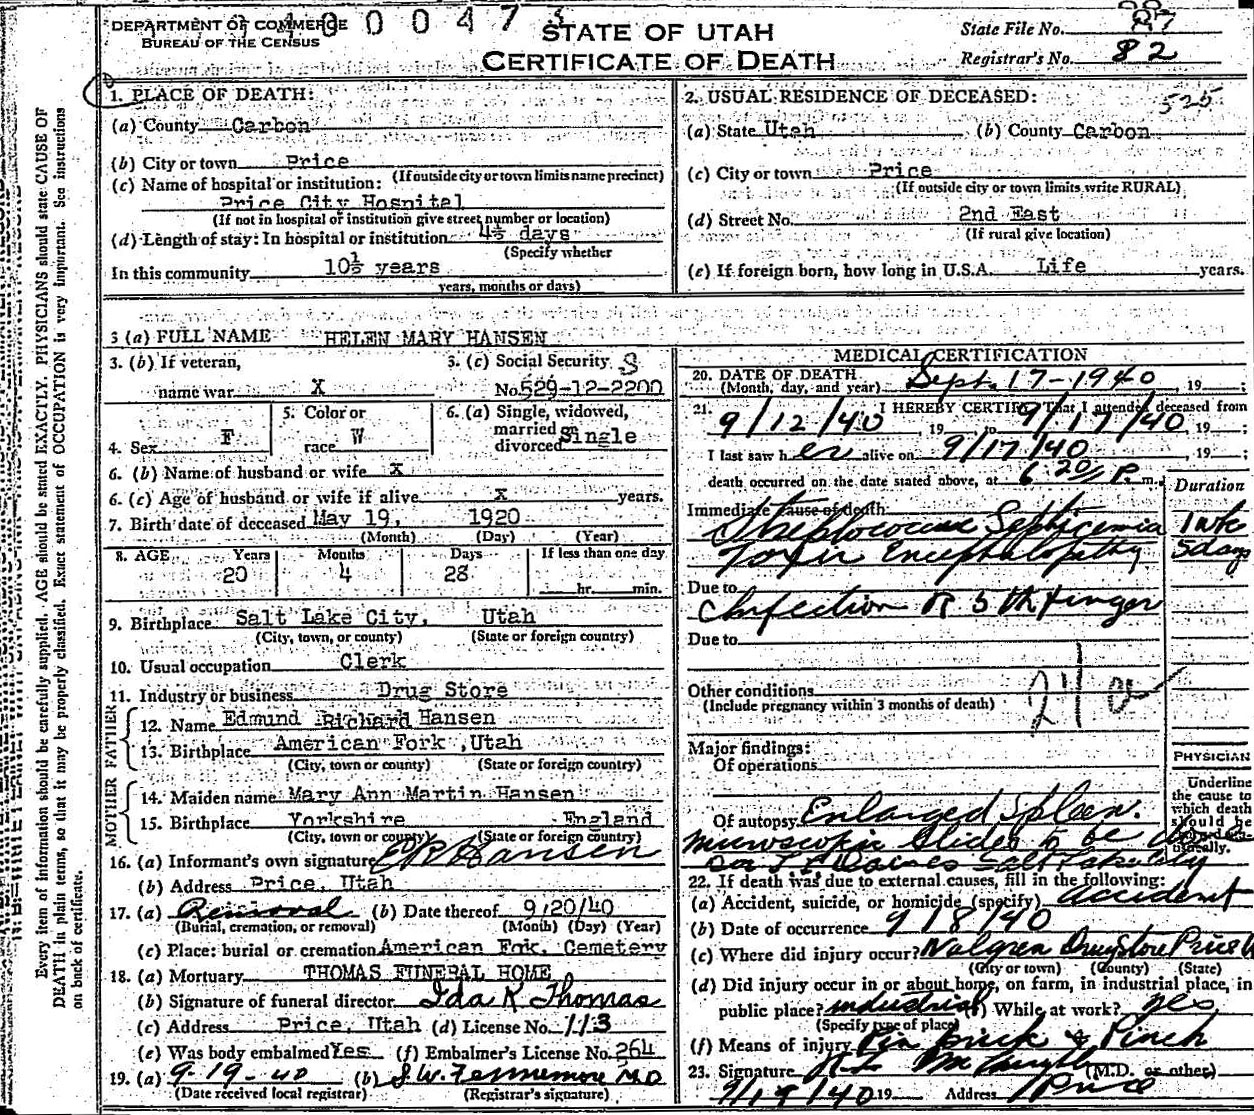 DEPARTMENT OF COMMERCE
BUREAU OF THE CENSUS
100047
STATE OF UTAH
CERTIFICATE OF DEATH
State File No.
Registrar's No. 82
1. PLACE OF DEATH:
(a) County Carbon
(b) City or town Price
(If outside city or town limits name precinct)
(c) Name of hospital or institution:
Price City Hospital
(If not in hospital or institution give street number or location)
(d) Length of stay: In hospital or institution 4½ days
(Specify whether
In this community 10½ years
years, months or days)
2. USUAL RESIDENCE OF DECEASED: 525
(a) State Utah (b) County Carbon
(c) City or town Price
(If outside city or town limits write RURAL)
(d) Street No. 2nd East
(If rural give location)
(e) If foreign born, how long in U.S.A. Life years.
3 (a) FULL NAME HELEN MARY HANSEN
3. (b) If veteran,
name war X
3. (c) Social Security
No. 529-12-2200
4. Sex F
5. Color or
race W
6. (a) Single, widowed,
married or
divorced Single
6. (b) Name of husband or wife X
6. (c) Age of husband or wife if alive X years.
7. Birth date of deceased May 19, 1920
(Month) (Day) (Year)
8. AGE Years Months Days If less than one day
20 4 28 hr. min.
9. Birthplace Salt Lake City, Utah
(City, town, or county) (State or foreign country)
10. Usual occupation Clerk
11. Industry or business Drug Store
FATHER
12. Name Edmund Richard Hansen
13. Birthplace American Fork, Utah
(City, town or county) (State or foreign country)
MOTHER
14. Maiden name Mary Ann Martin Hansen
15. Birthplace Yorkshire England
(City, town or county) (State or foreign country)
16. (a) Informant's own signature E R Hansen
(b) Address Price, Utah
17. (a) Removal (b) Date thereof 9/20/40
(Burial, cremation, or removal) (Month) (Day) (Year)
(c) Place: burial or cremation American Fok, Cemetery
18. (a) Mortuary THOMAS FUNERAL HOME
(b) Signature of funeral director Ida K Thomas
(c) Address Price, Utah (d) License No. 113
(e) Was body embalmed Yes (f) Embalmer's License No. 264
19. (a) 9-19-40 (b) S.W. Fennemore M.D
(Date received local registrar) (Registrar's signature)
MEDICAL CERTIFICATION
20. DATE OF DEATH
(Month, day, and year) Sept. 17-1940, 19 ;
21. I HEREBY CERTIFY That I attended deceased from
9/12/40, 19 , to 9/17/40, 19 ;
I last saw her alive on 9/17/40, 19 ;
death occurred on the date stated above, at 6:20 P. m.
Duration
Immediate cause of death
Streptococcus Septicemia 1 wk
Toxic Encephalopathy 5 days
Due to
Infection R 5th finger
Due to
Other conditions
(Include pregnancy within 3 months of death)
Major findings:
Of operations
Of autopsy Enlarged Spleen.
Microscopic Slides to be
Salt Lake City
PHYSICIAN
Underline
the cause to
which death
should be
22. If death was due to external causes, fill in the following:
(a) Accident, suicide, or homicide (specify) accident
(b) Date of occurrence 9/8/40
(c) Where did injury occur? Walgren Drugstore Price U
(City or town) (County) (State)
(d) Did injury occur in or about home, on farm, in industrial place, in
public place? industrial While at work? yes
(Specify type of place)
(f) Means of injury Pin prick & Pinch
23. Signature (M.D. or other)
19 Address Price
Every item of information should be carefully supplied. AGE should be stated EXACTLY. PHYSICIANS should state CAUSE OF
DEATH in plain terms, so that it may be properly classified. Exact statement of OCCUPATION is very important. See instructions
on back of certificate.